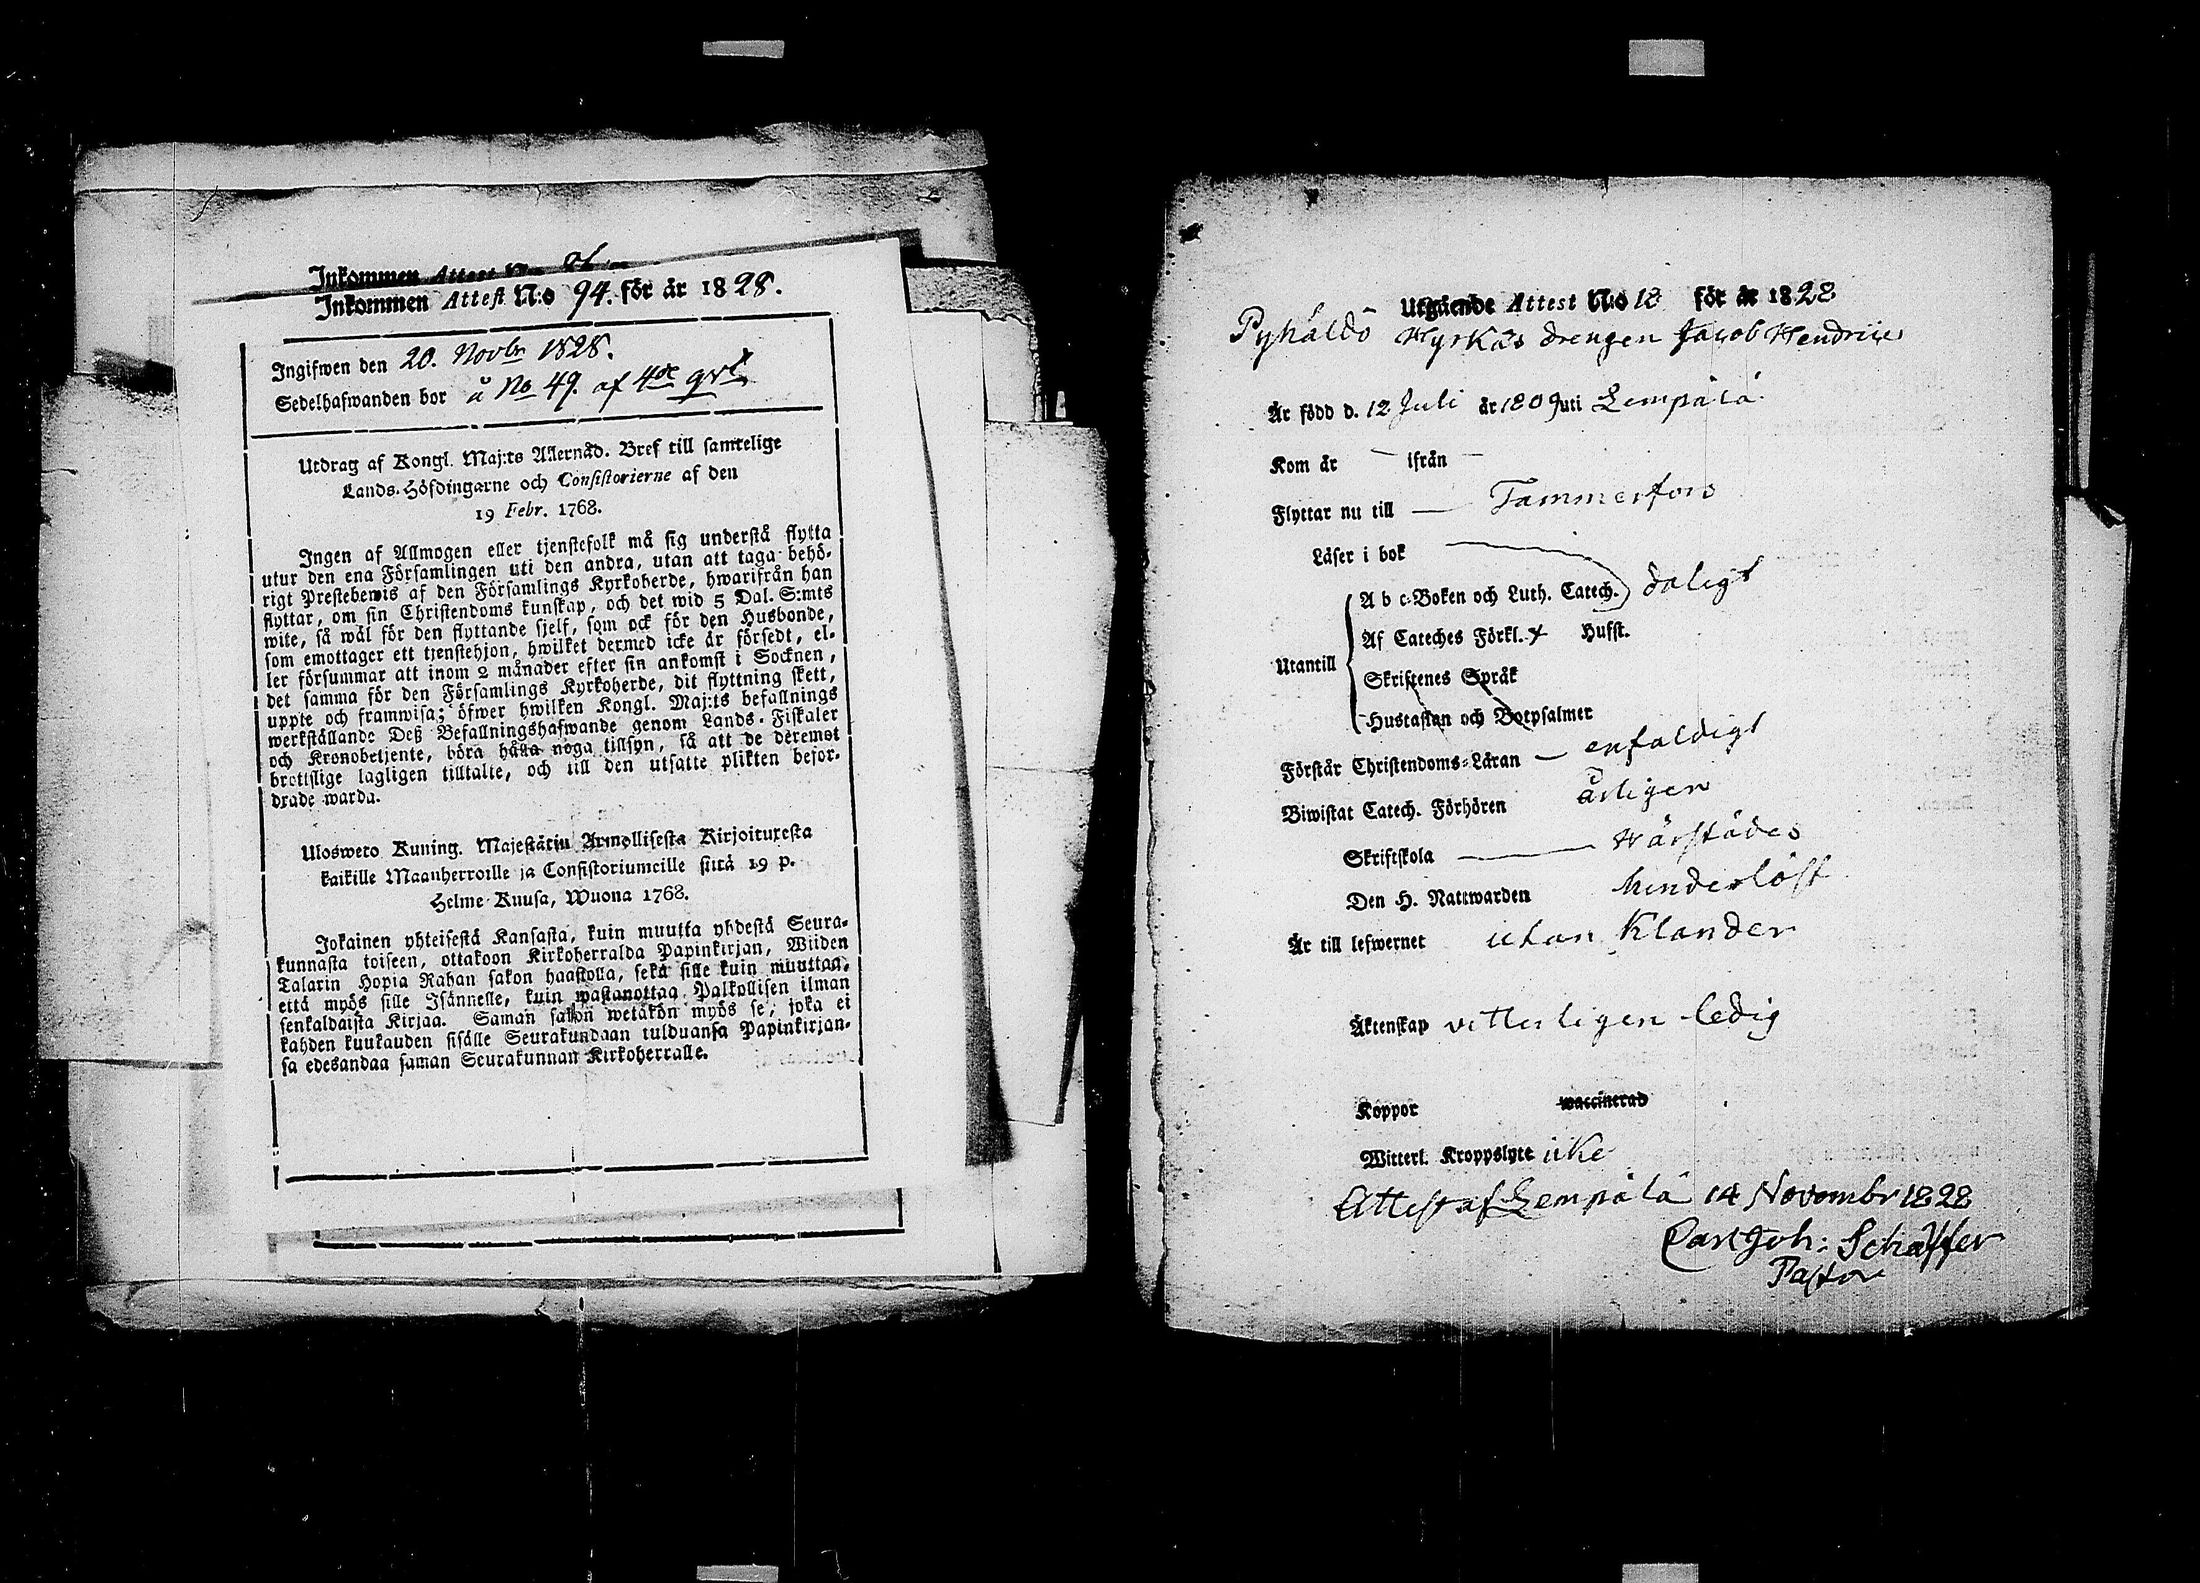 Inkommen Attest N:o 86
Inkommen Attest N:o 94. för år 1828.
Ingifwen den 20. Novbr 1828.
Sedelhafwanden bor å No 49. af 4de qrt
Utdrag af Kongl. Maj:ts Allernåd. Bref till samtelige
Lands-Höfdingarne och Consistorierne af den
19 Febr. 1768.
Ingen af Allmogen eller tjenstefolk må sig understå flytta
utur den ena Församlingen uti den andra, utan att taga behö-
rigt Prestebewis af den Församlings Kyrkoherde, hwarifrån han
flyttar, om sin Christendoms kunskap, och det wid 5 Dal. S:mts
wite, så wäl för den flyttande sjelf, som ock för den Husbonde,
som emottager ett tjenstehjon, hwilket dermed icke är försedt, el-
ler försummar att inom 2 månader efter sin ankomst i Socknen,
det samma för den Församlings Kyrkoherde, dit flyttning skett,
uppte och framwisa; öfwer hwilken Kongl. Maj:ts befallnings
werkställande Deß Befallningshafwande genom Lands-Fiskaler
och Kronobetjente, böra hålla noga tillsyn, så att de deremot
brottslige lagligen tilltalte, och till den utsatte plikten befor-
drade warda.
Ulosweto Kuning. Majestätin Armollisesta Kirjoituxesta
kaikille Maanherroille ja Consistoriumeille siitä 19 p.
Helme-Kuusa, Wuona 1768.
Jokainen yhteisestä Kansasta, kuin muutta yhdestä Seura-
kunnasta toiseen, ottakoon Kirkoherralda Papinkirjan, Wiiden
Talarin Hopia Rahan sakon haastolla, sekä sille kuin muuttaa,
että myös sille Isännelle, kuin wastanottaa Palkollisen ilman
senkaldaista Kirjaa. Saman sakon wetäkön myös se, joka ei
kahden kuukauden sisälle Seurakundaan tulduansa Papinkirjan-
sa edesandaa saman Seurakunnan Kirkoherralle.
Utgående Attest N:o 18 för år 1828
Pyhäldö Hyrkäs drengen Jacob Hendric
Är född d. 12 Juli år 1809 uti Lempälä
Kom år — ifrån —
Flyttar nu till — Tammerfors
Läser i bok
A b c-Boken och Luth. Catech. daligt
Af Cateches Förkl. Husst.
Utantill
Skriftenes Språk
Hustaflan och Botpsalmer
Förstår Christendoms-Läran — enfaldigt
Biwistat Catech. Förhören årligen
Skriftskola — wärstädes
Den H. Nattwarden hinderlöst
Är till lefwernet utan Klander
Äktenskap vitterligen ledig
Koppor waccinerad
Witterl. Kroppslyte icke
Attest af Lempälä 14 Novembr 1828
Carl Joh: Schäffer
Pastor